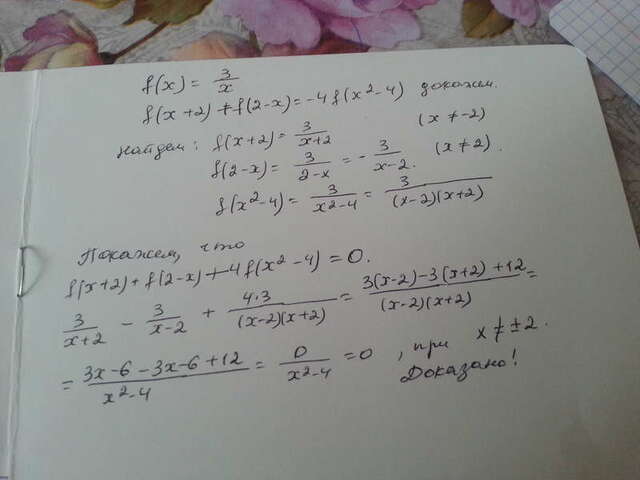 f(x) = 3/x
f(x+2) + f(2-x) = -4 f(x²-4) докажем.
Найдем: f(x+2) = 3/(x+2) (x ≠ -2)
f(2-x) = 3/(2-x) = - 3/(x-2). (x ≠ 2).
f(x²-4) = 3/(x²-4) = 3/((x-2)(x+2))
Покажем, что
f(x+2) + f(2-x) + 4 f(x²-4) = 0.
3/(x+2) - 3/(x-2) + (4·3)/((x-2)(x+2)) = (3(x-2)-3(x+2)+12)/((x-2)(x+2)) =
= (3x-6-3x-6+12)/(x²-4) = 0/(x²-4) = 0, при x ≠ ±2.
Доказано!